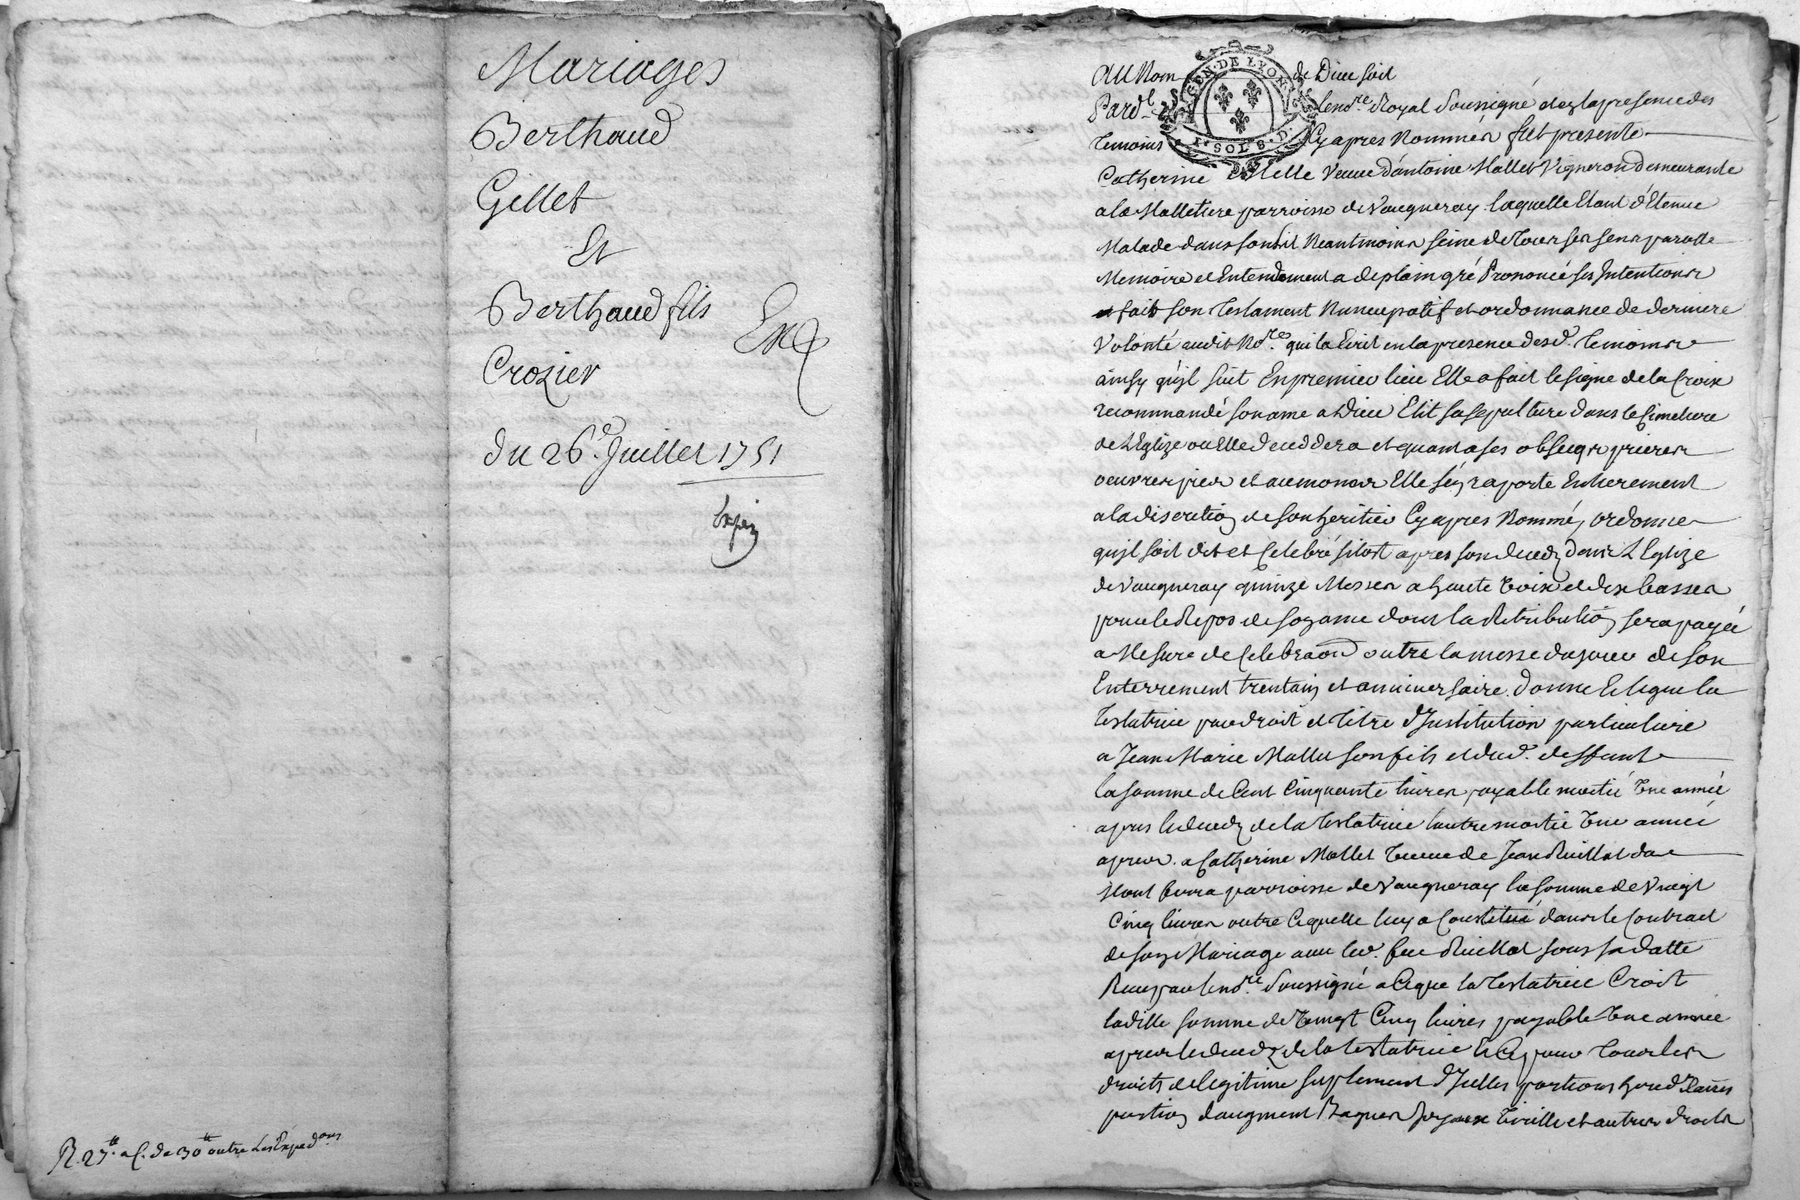 Mariages
Berthaud
Gillet
Et
Berthaud fils
Crozier
Exp
du 26e. Juillet 1751
Expéd
R. 27tt a C. de 30tt outre les Expedons
GEN. DE LYON
1. SOL 8. D.
AU Nom de Dieu soit
Pard.t le no.re Royal Soussigné et en la presence des
temoins Cy apres Nommés fut presente
Catherine Velle veuve d'antoine Mallet Vigneron demeurante
a la Malletiere parroisse de vaugneray laquelle Etant détenue
Malade dans son lit Neantmoins seine de tous ses sens parolle
Memoire et Entendement a de plain gré Prononcé ses Intentions
et fait son testament Nuncupatif et ordonnance de derniere
Volonté audit No.re qui la Ecrit en la presence desd. temoins
ainsy qu'jl suit En premier lieu Elle a fait le signe de la Croix
recommandé son ame a Dieu Elit sa sepulture dans le Cimetiere
de L'Eglize ou Elle deceddera et quant a ses obseques prieres
oeuvres pies et aumones Elle s'en raporte Entierement
a la discretion de son heritier Cy apres Nommé, ordonne
qu'jl soit dit et Celebré sitost apres son deceds dans L'Eglize
de Vaugneray quinze Messes a haute voix et dix basses
pour le Repos de son ame dont la Retribution sera payée
a Mesure de Celebraon outre la messe du jour de son
Enterrement trentain et anniversaire. donne et legue la
testatrice par droit et titre d'Institution particuliere
a Jean Marie Mallet son fils et dud. deffunt
la somme de Cent Cinquante livres payable moitié Une année
apres le deceds de la testatrice l'autre moitié Une année
apres. a Catherine Mallet veuve de Jean Ruillat de
parroisse de Vaugneray la somme de Vingt
Cinq livres outre Ce quelle luy a Constitué dans le Contract
de son Mariage avec led. feu Ruillat sous sa datte
Receu par le no.re Soussigné a Ce que la testatrice Croit
ladite somme de Vingt Cinq livres payable Une année
apres le deceds de la testatrice Et Ce pour tous les
droits de legitime suplement d'Jcelles portions hereditaires
portion d'augment Bagues Joyaux Tiville et autres droits